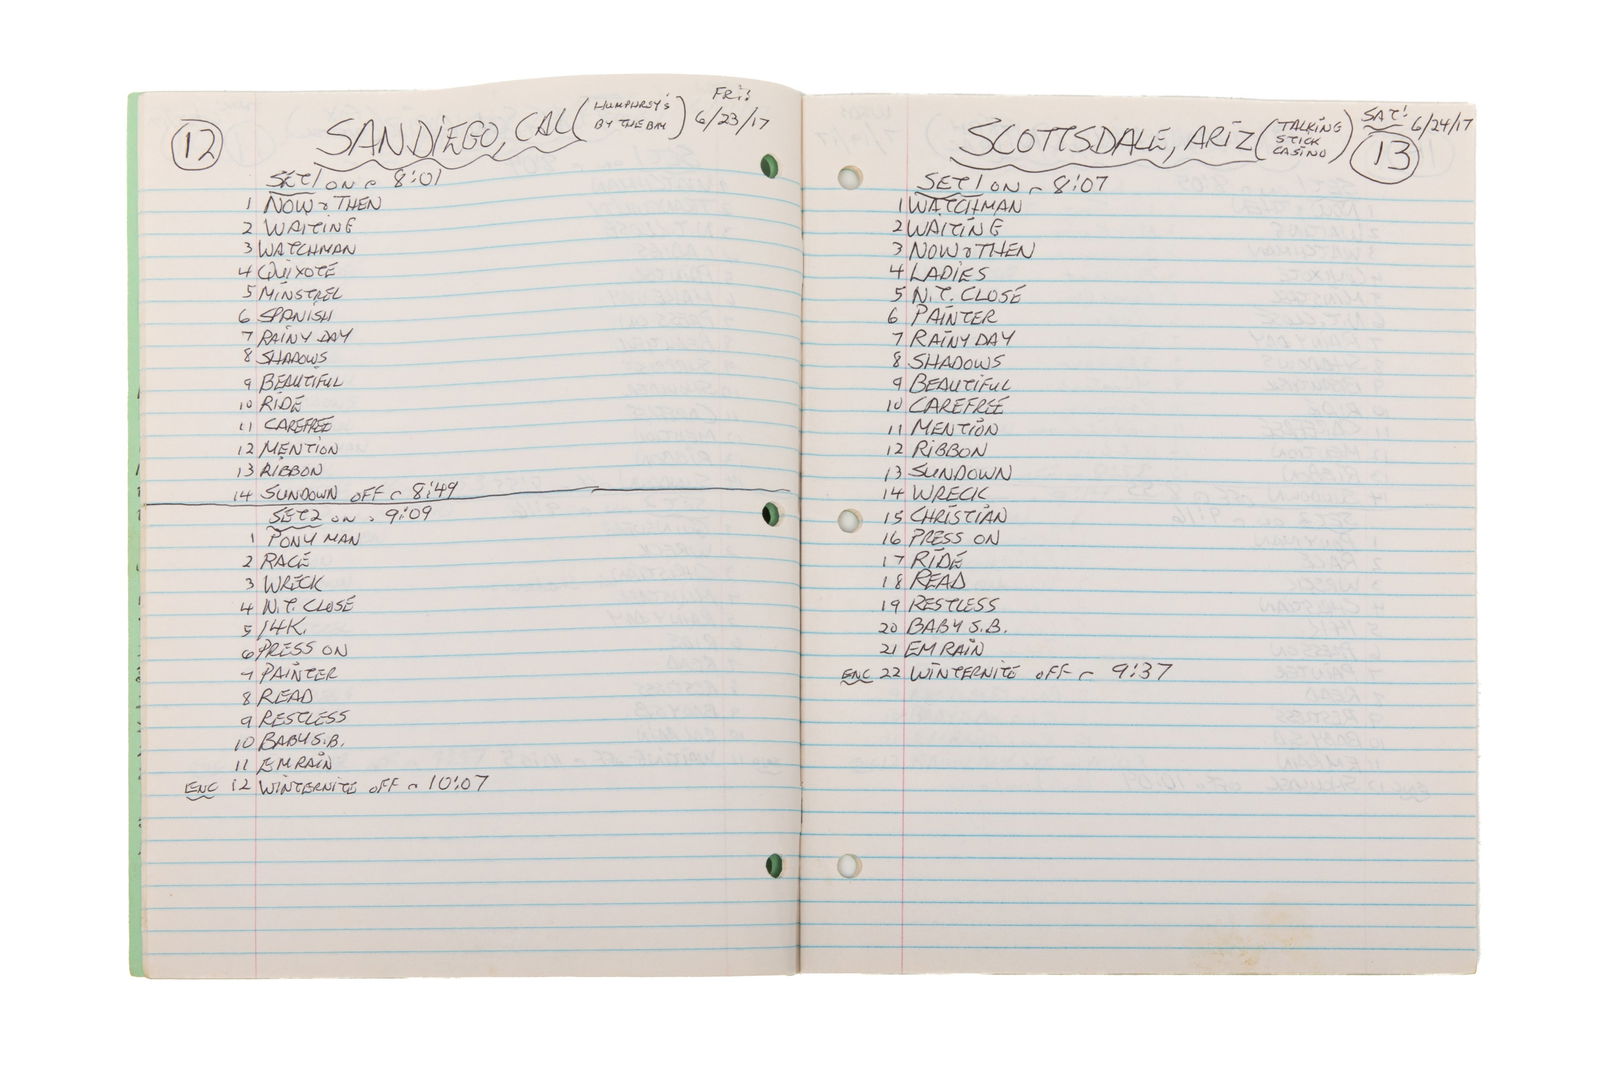 12 SAN DIEGO, CAL (HUMPHREY'S BY THE BAY) FRI: 6/23/17
SET 1 ON 8:01
1 NOW & THEN
2 WAITING
3 WATCHMAN
4 QUIXOTE
5 MINSTREL
6 SPANISH
7 RAINY DAY
8 SHADOWS
9 BEAUTIFUL
10 RIDE
11 CAREFREE
12 MENTION
13 RIBBON
14 SUNDOWN OFF 8:49
SET 2 ON 9:09
1 PONY MAN
2 RACE
3 WRECK
4 N.T. CLOSE
5 14K.
6 PRESS ON
7 PAINTER
8 READ
9 RESTLESS
10 BABY S.B.
11 EM RAIN
ENC 12 WINTERNITE OFF 10:07
SCOTTSDALE, ARIZ (TALKING STICK CASINO) SAT: 6/24/17
13
SET 1 ON 8:07
1 WATCHMAN
2 WAITING
3 NOW & THEN
4 LADIES
5 N.T. CLOSE
6 PAINTER
7 RAINY DAY
8 SHADOWS
9 BEAUTIFUL
10 CAREFREE
11 MENTION
12 RIBBON
13 SUNDOWN
14 WRECK
15 CHRISTIAN
16 PRESS ON
17 RIDE
18 READ
19 RESTLESS
20 BABY S.B.
21 EM RAIN
ENC 22 WINTERNITE OFF 9:37